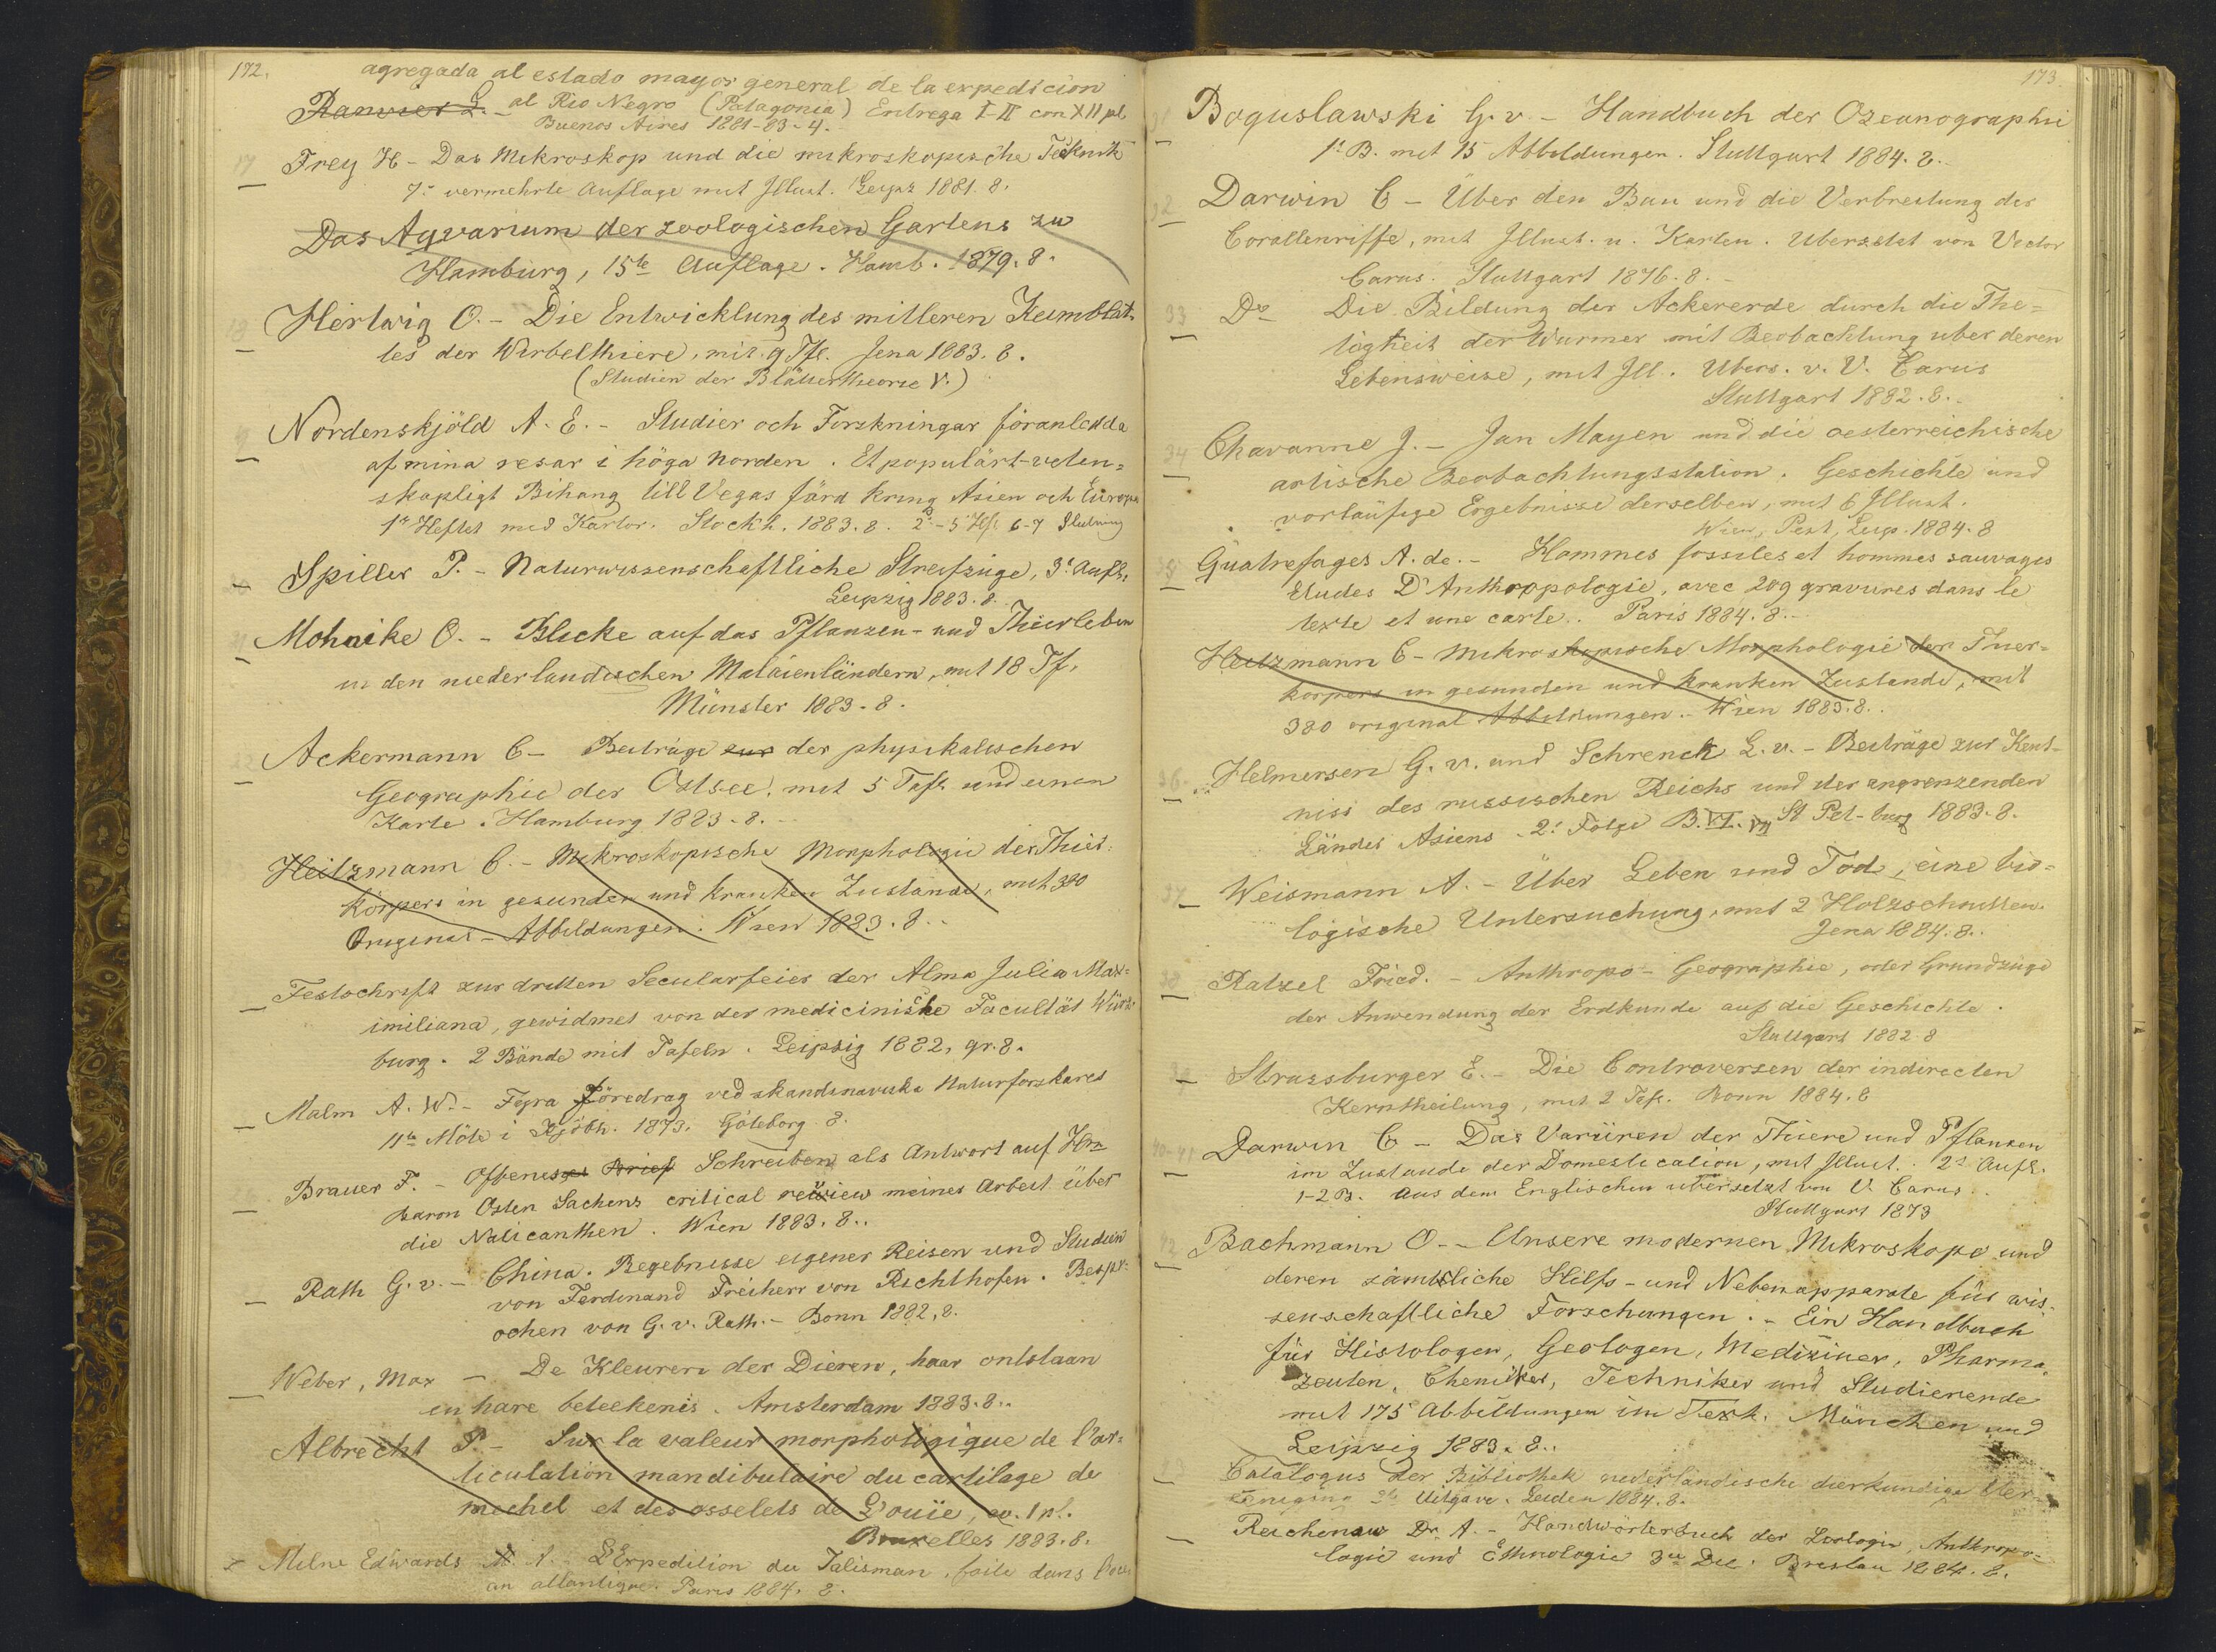 172.
agregada al estado mayor general de la expedicion
Ranvier L. - al Rio Negro (Patagonia) Entrega I-II con XII pl.
Buenos Aires 1881-83-4.
17 Frey H - Das Mikroskop und die mikroskopische Technik
7e vermehrte Auflage mit Illust. Leipz 1881. 8.
Das Aqvarium der zoologischen Gartens zu
Hamburg, 15te Auflage. Hamb. 1879. 8.
18 Hertwig O. - Die Entwicklung des mitleren Keimblat-
tes der Wirbelthiere, mit 9 Tfl. Jena 1883. 8.
(Studien der Blättertheorie V.)
Nordenskjöld A. E. - Studier och Forskningar föranledda
af mina resar i höga Norden. Et populärt-veten-
skapligt Bihang till Vegas färd kring Asien och Europa
1a Heftet med Kartor. Stockh. 1883. 8. 2-5 Hft 6-7 Slutning
Spiller P. - Naturwissenschaftliche Streifzüge, 3e Aufl.
Leipzig 1883. 8.
Mohnike O. - Blicke auf das Pflanzen- und Thierleben
in den niederlandischen Malaienländern, mit 18 Tf.
Münster 1883. 8.
22 Ackermann C - Beiträge zur der physikalischen
Geographie der Ostsee, mit 5 Taf. und einen
Karte. Hamburg 1883. 8. -
Heitzmann C. - Mikroskopische Morphologie des Thier-
körpers in gesunden und kranken Zustande, mit 380
Original-Abbildungen. Wien 1883. 8. -
Festschrift zur dritten Secularfeier der Alma Julia Max-
imiliana, gewidmet von der medicinische Facultät Würz-
burg. 2 Bände mit Tafeln. Leipzig 1882, gr. 8.
Malm A. W. - Fyra Föredrag ved skandinaviska Naturforskares
11te Möte i Kjöbh. 1873. Göteborg 8.
Brauer F. - Offenes Brief Schreiben als Antwort auf Hrn
Baron Osten Sackens critical review meines Arbeit über
die Nolicanthen. Wien 1883. 8..
Rath G. v. - China. Begebnisse eigener Reisen und Studien
von Ferdinand Freiherr von Richthofen. Bespr-
ochen von G. v. Rath. - Bonn 1882, 8.
Weber, Max - De Kleuren der Dieren, haar ontstaan
en hare beteekenis. Amsterdam 1883. 8..
Albrecht P. - Sur la valeur morphologique de l'ar-
ticulation mandibulaire du cartilage de
meckel et des osselets de L'ouïe, av. 1 pl.
Bruxelles 1883. 8.
Milne Edwards A. - L'Expedition du Talisman, faite dans l'océ
an atlantique. Paris 1884. 8.
173.
31 Boguslawski G. v. - Handbuch der Ozeanographie
1e B. mit 15 Abbildungen. Stuttgart 1884. 8. -
32 Darwin C - Über den Bau und die Verbreitung der
Corallenriffe, mit Illust. u. Karten. Uberzetst von Victor
Carus. Stuttgart 1876. 8. -
33 Do Die Bildung der Ackererde durch die The-
tigkeit der Würmer mit Beobachtung uber deren
Lebensweise, mit Ill. Ubers. v. V. Carus
Stuttgart 1882. 8. -
34 Chavanne J. - Jan Mayen und die oesterreichische
artische Beobachtungsstation. Geschichte und
vorläufige Ergebnisse derselben, mit 6 Illust.
Wien, Pest, Leip. 1884. 8
35 Quatrefages A. de. - Hommes fossiles et hommes sauvages
Etudes D'Anthroppologie, avec 209 gravures dans le
texte et une carte. Paris 1884. 8. -
Heitzmann C - Mikroskopische Morphologie der Thier-
korpers in gesunden und kranken Zustande, mit
380 original Abbildungen. - Wien 1883. 8..
36. Helmersen G. v. und Schrenck L. v. - Beiträge zur Kent-
niss des russischen Reichs und der angrenzenden
Länder Asiens. 2e Folge B. VI. VII St Pet-burg 1883. 8.
37 Weismann A. - Über Leben und Tod, eine bio-
logische Untersuchung, mit 2 Holzschnitten.
Jena 1884. 8..
38 Ratzel Fried. - Anthropo-Geographie, oder Grundzüge
der Anwendung der Erdkunde auf die Geschichte.
Stuttgart 1882. 8
39 Strassburger E. - Die Controversen der indirecten
Kerntheilung, mit 2 Taf. Bonn 1884. 8
40-41 Darwin C - Das Variiren der Thiere und Pflanzen
im Zustande der Domestication, mit Illust. 2e Aufl.
1-2 B. aus dem Englischen übersetzt von V. Carus.
Stuttgart 1873
42 Bachmann O - - Unsere modernen Mikroskope und
deren sämtliche Hilfs- und Nebenapparate für wis-
senschaftliche Forschungen. - Ein Handbuch
für Histologen, Geologen, Mediziner, Pharma-
zeuten, Chemiker, Techniker und Studierende
mit 175 Abbildungen im Text. München und
Leipzig 1883. 8..
Catalogus der Bibliothek nederlandische dierkundige Ver-
eeniging 2te Uitgave. Leiden 1884. 8.
Reichenow Dr. A. - Handwörterbuch der Zoologie, Anthropo-
logie und Ethnologie 3er Del. Breslau 1884. 8.